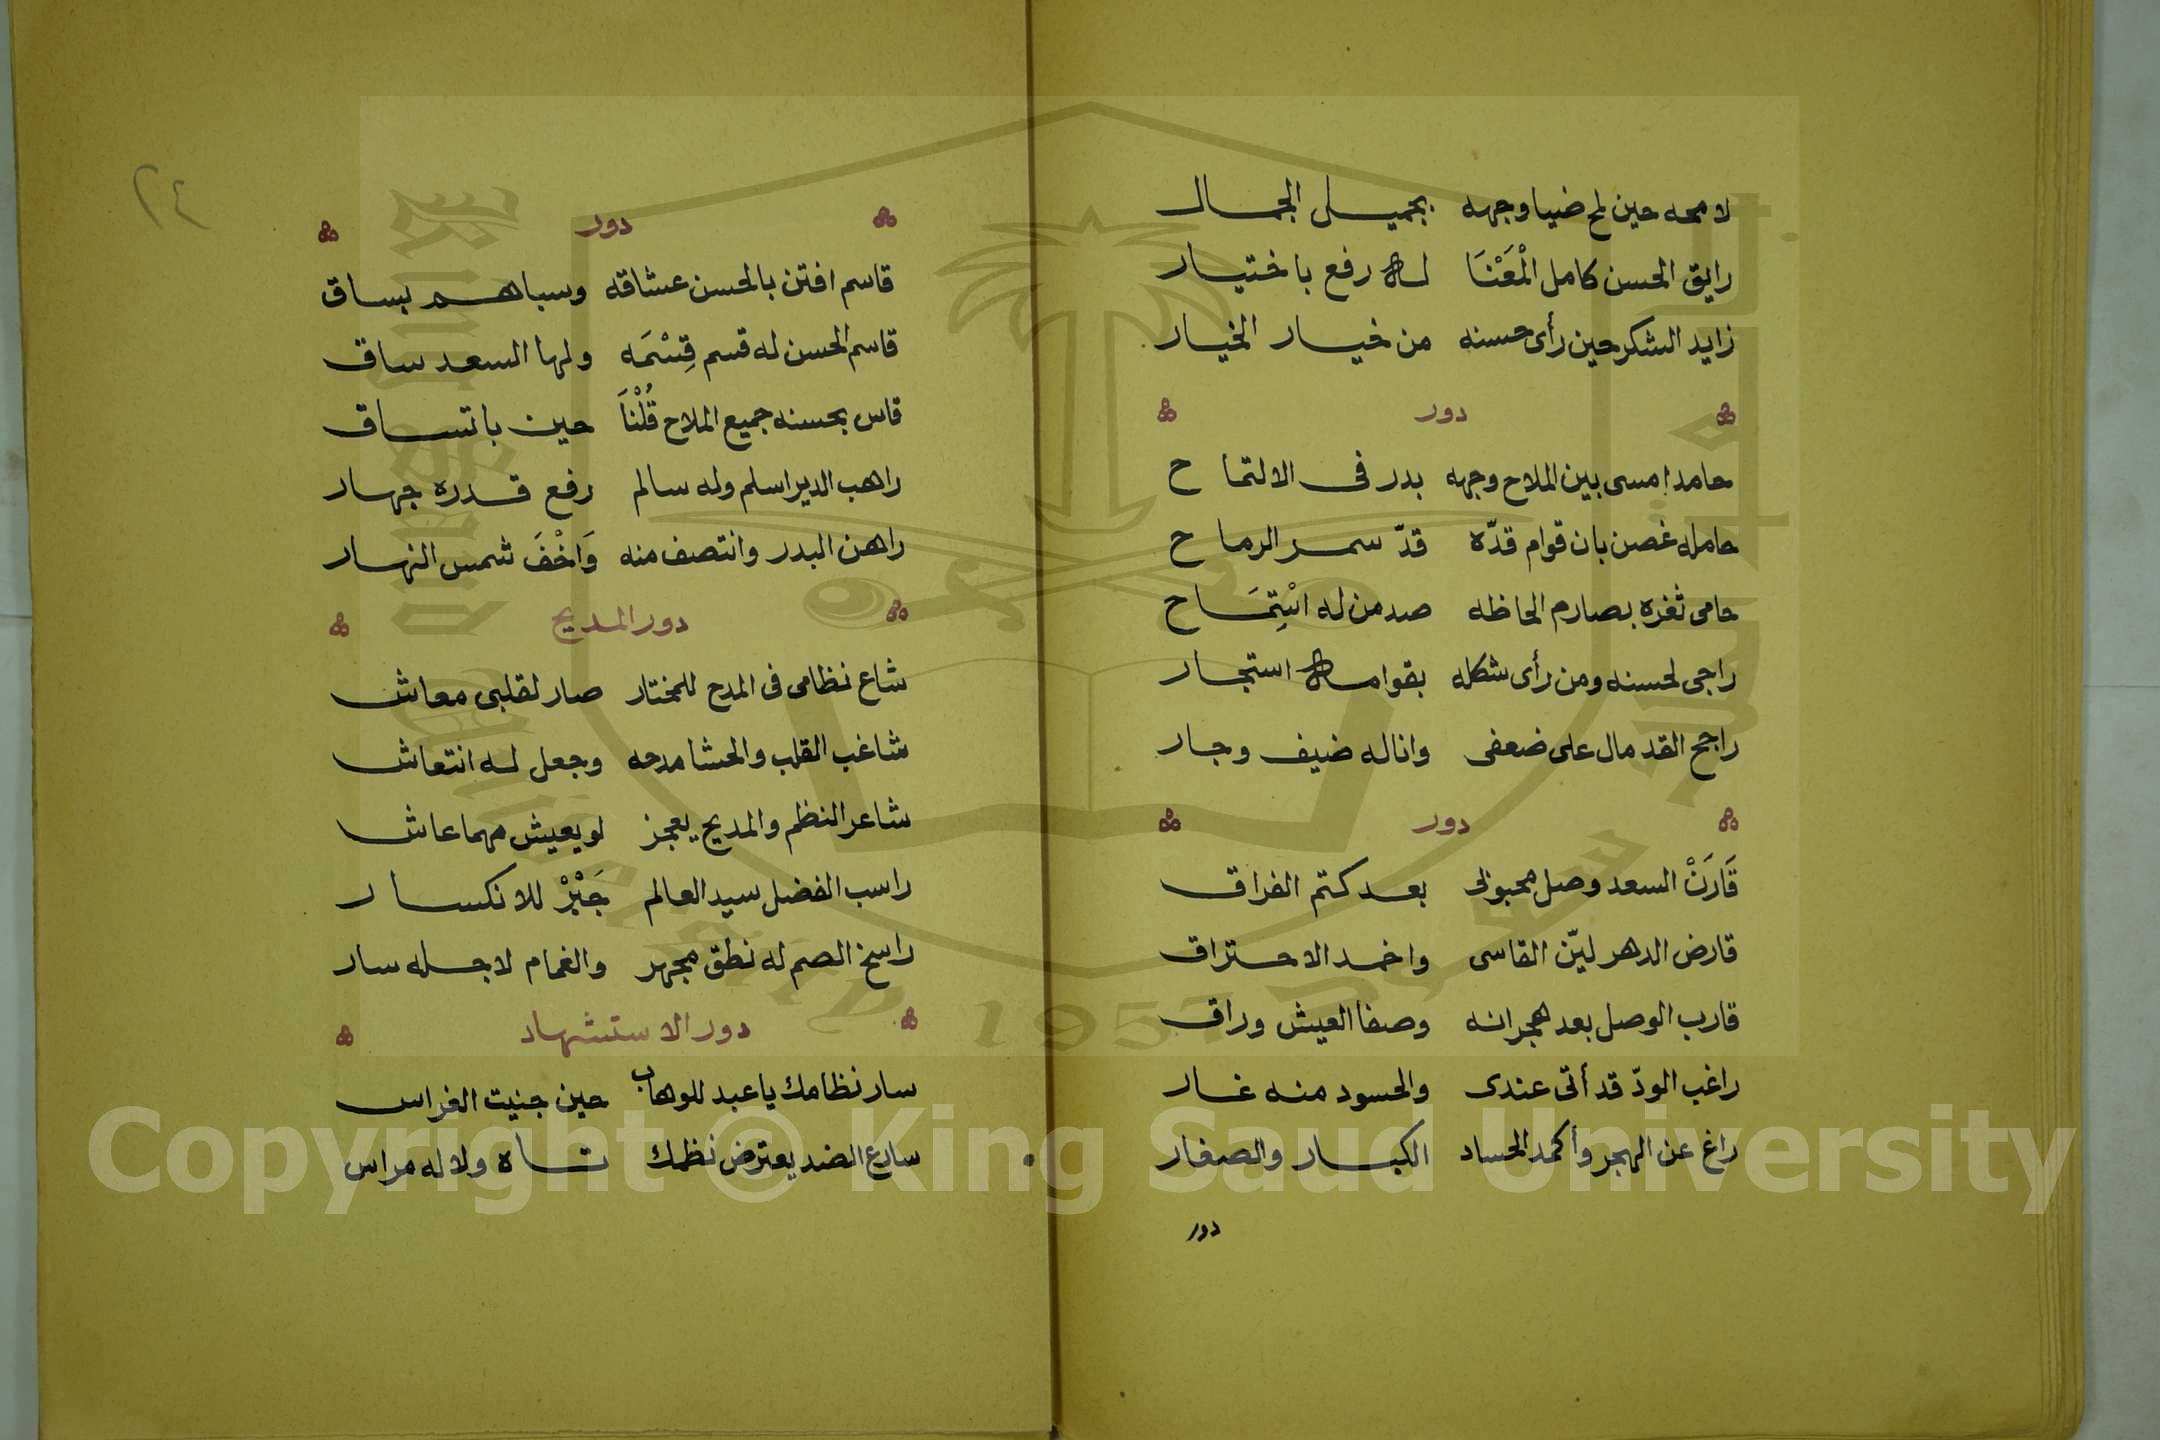 لامحه حين لمح ضيا وجهه بجميل الجمال
رايق الحسن كامل المْعَنَا له رفع باختيار
زايد الشكر حين رأى حسنه من خيار الخيار
دور
حامد امسى بين الملاح وجهه بدر فى الالتماح
حامله غصن بان قوام قدّه قدّ سمر الرماح
حامى ثغره بصارم الحاظه صد من له
راجى لحسنه ومن رأى شكله بقوامه استجار
راجح القد مال على ضعفى وانا له ضيف وجار
دور
قَارَنْ السعد وصل محبوبى بعد كتم الفراق
قارض الدهر ليّن القاسى واخمد الاحتراق
قارب الوصل بعد هجرانه وصفا العيش وراق
راغب الودّ قد أتى عندى والحسود منه غار
راغ عن الهجر وأكمد الحساد الكبار والصغار
دور
٢٤
دور
قاسم افتن بالحسن عشاقه وسباهم بساق
قاسم الحسن له قسم قِسْمَه ولها السعد ساق
قاس بحسنه جميع الملاح قُلْنَا حين باتساق
راهب الدير اسلم وله سالم رفع قدره جهار
راهن البدر وانتصف منه وَاخْفَ شمس النهار
دور المديح
شاع نظامى فى المدح للمختار صار لقلبى معاش
شاغب القلب والحشا مدحه وجعل له انتعاش
شاعر النظم والمديح يعجز لو يعيش مهما عاش
راسب الفضل سيد العالم جَبْرْ للانكسار
راسخ الصم له نطق مجهر والغمام لاجله سار
دور الاستشهاد
سار نظامك يا عبد للوهاب حين جنيت الغراس
سارع الضد يعترض نظمك تاه ولا له مراس
Copyright © King Saud University
King Saud University 1957